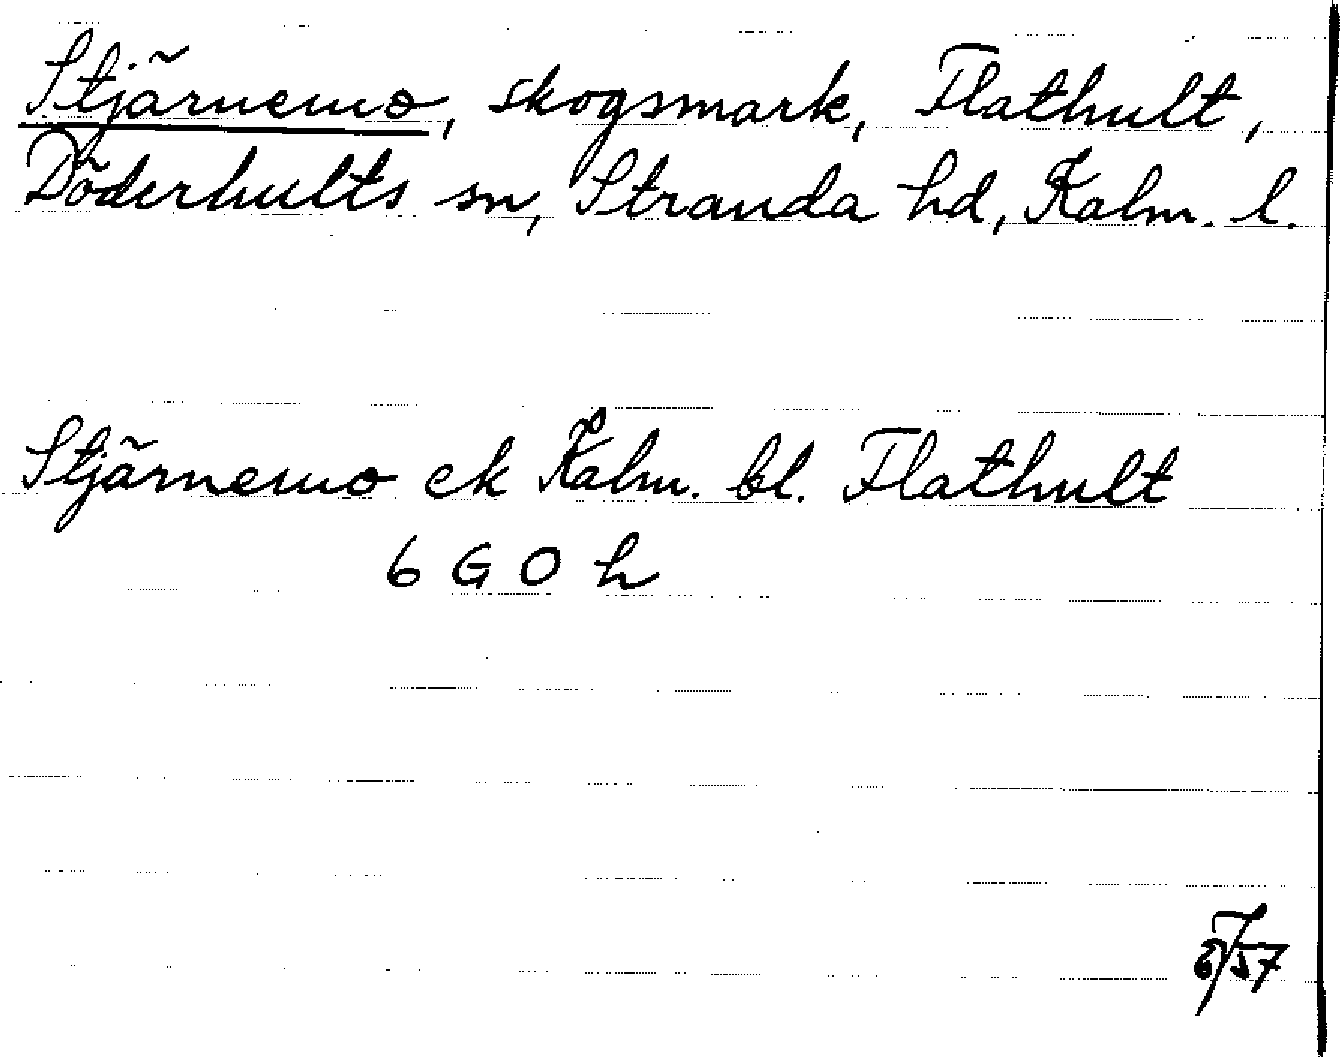 Stjärnemo, skogsmark, Flathult,
Döderhults sn, Stranda hd, Kalm. l.
Stjärnemo ek Kalm. bl. Flathult
6 G O h